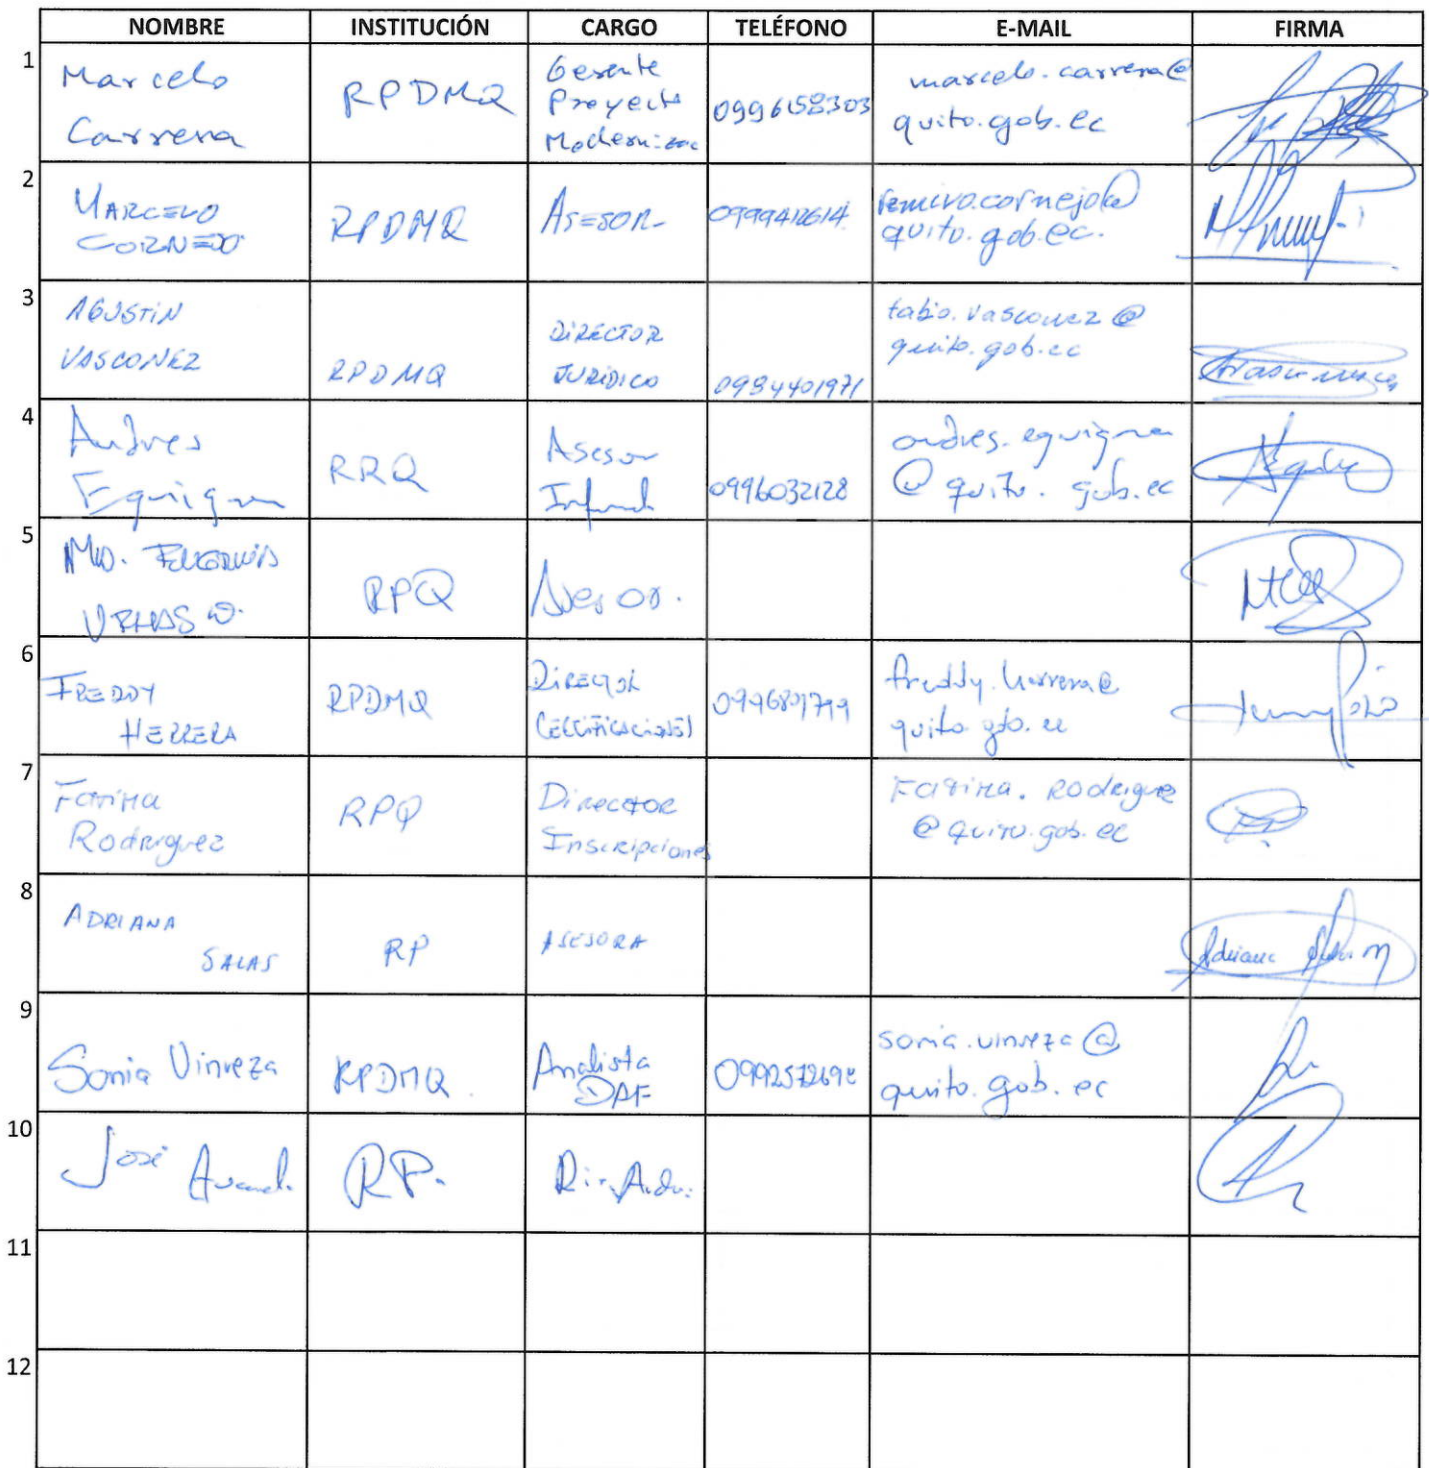 NOMBRE INSTITUCIÓN CARGO TELÉFONO E-MAIL FIRMA
1
Marcelo
Carrera
RPDMQ
Gerente
Proyecto
Modernizac
0996158303
marcelo.carrera@
quito.gob.ec
2
MARCELO
CORNEJO
RPDMQ
ASESOR
0999412614
ramiro.cornejo@
quito.gob.ec.
3
AGUSTIN
VASCONEZ
RPDMQ
DIRECTOR
JURIDICO
0984401971
fabio.vasconez@
quito.gob.ec
4
Andres
Eguiguren
RRQ
Asesor
0996032128
andres.eguiguren
@quito.gob.ec
5
RPQ
Asesor.
6
FREDDY
HERRERA
RPDMQ
DIRECTOR
CERTIFICACIONES
freddy.herrera@
quito.gob.ec
7
Fatima
Rodriguez
RPQ
Director
Inscripciones
Fatima.Rodriguez
@quito.gob.ec
8
ADRIANA
SALAS
RP
ASESORA
Adriana
9
Sonia Vinueza
RPDMQ.
Analista
DAF
sonia.vinueza@
quito.gob.ec
10
José
RP.
11
12